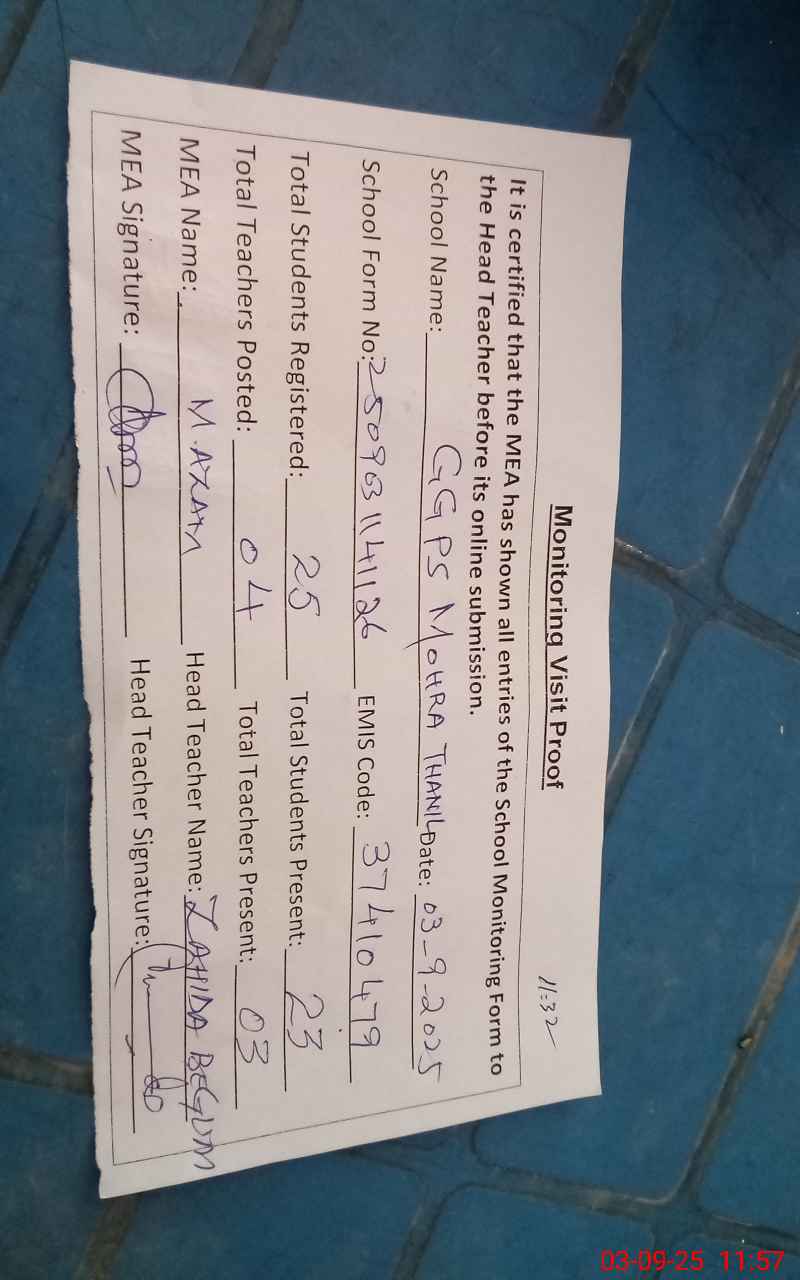 11:32
Monitoring Visit Proof
It is certified that the MEA has shown all entries of the School Monitoring Form to
the Head Teacher before its online submission.
School Name: GGPS MOHRA THANIL Date: 03-9-2025
School Form No: 250903114126 EMIS Code: 37410479
Total Students Registered: 25 Total Students Present: 23
Total Teachers Posted: 04 Total Teachers Present: 03
MEA Name: M. AZAM Head Teacher Name: ZAHIDA BEGUM
MEA Signature: Head Teacher Signature:
03-09-25 11:57